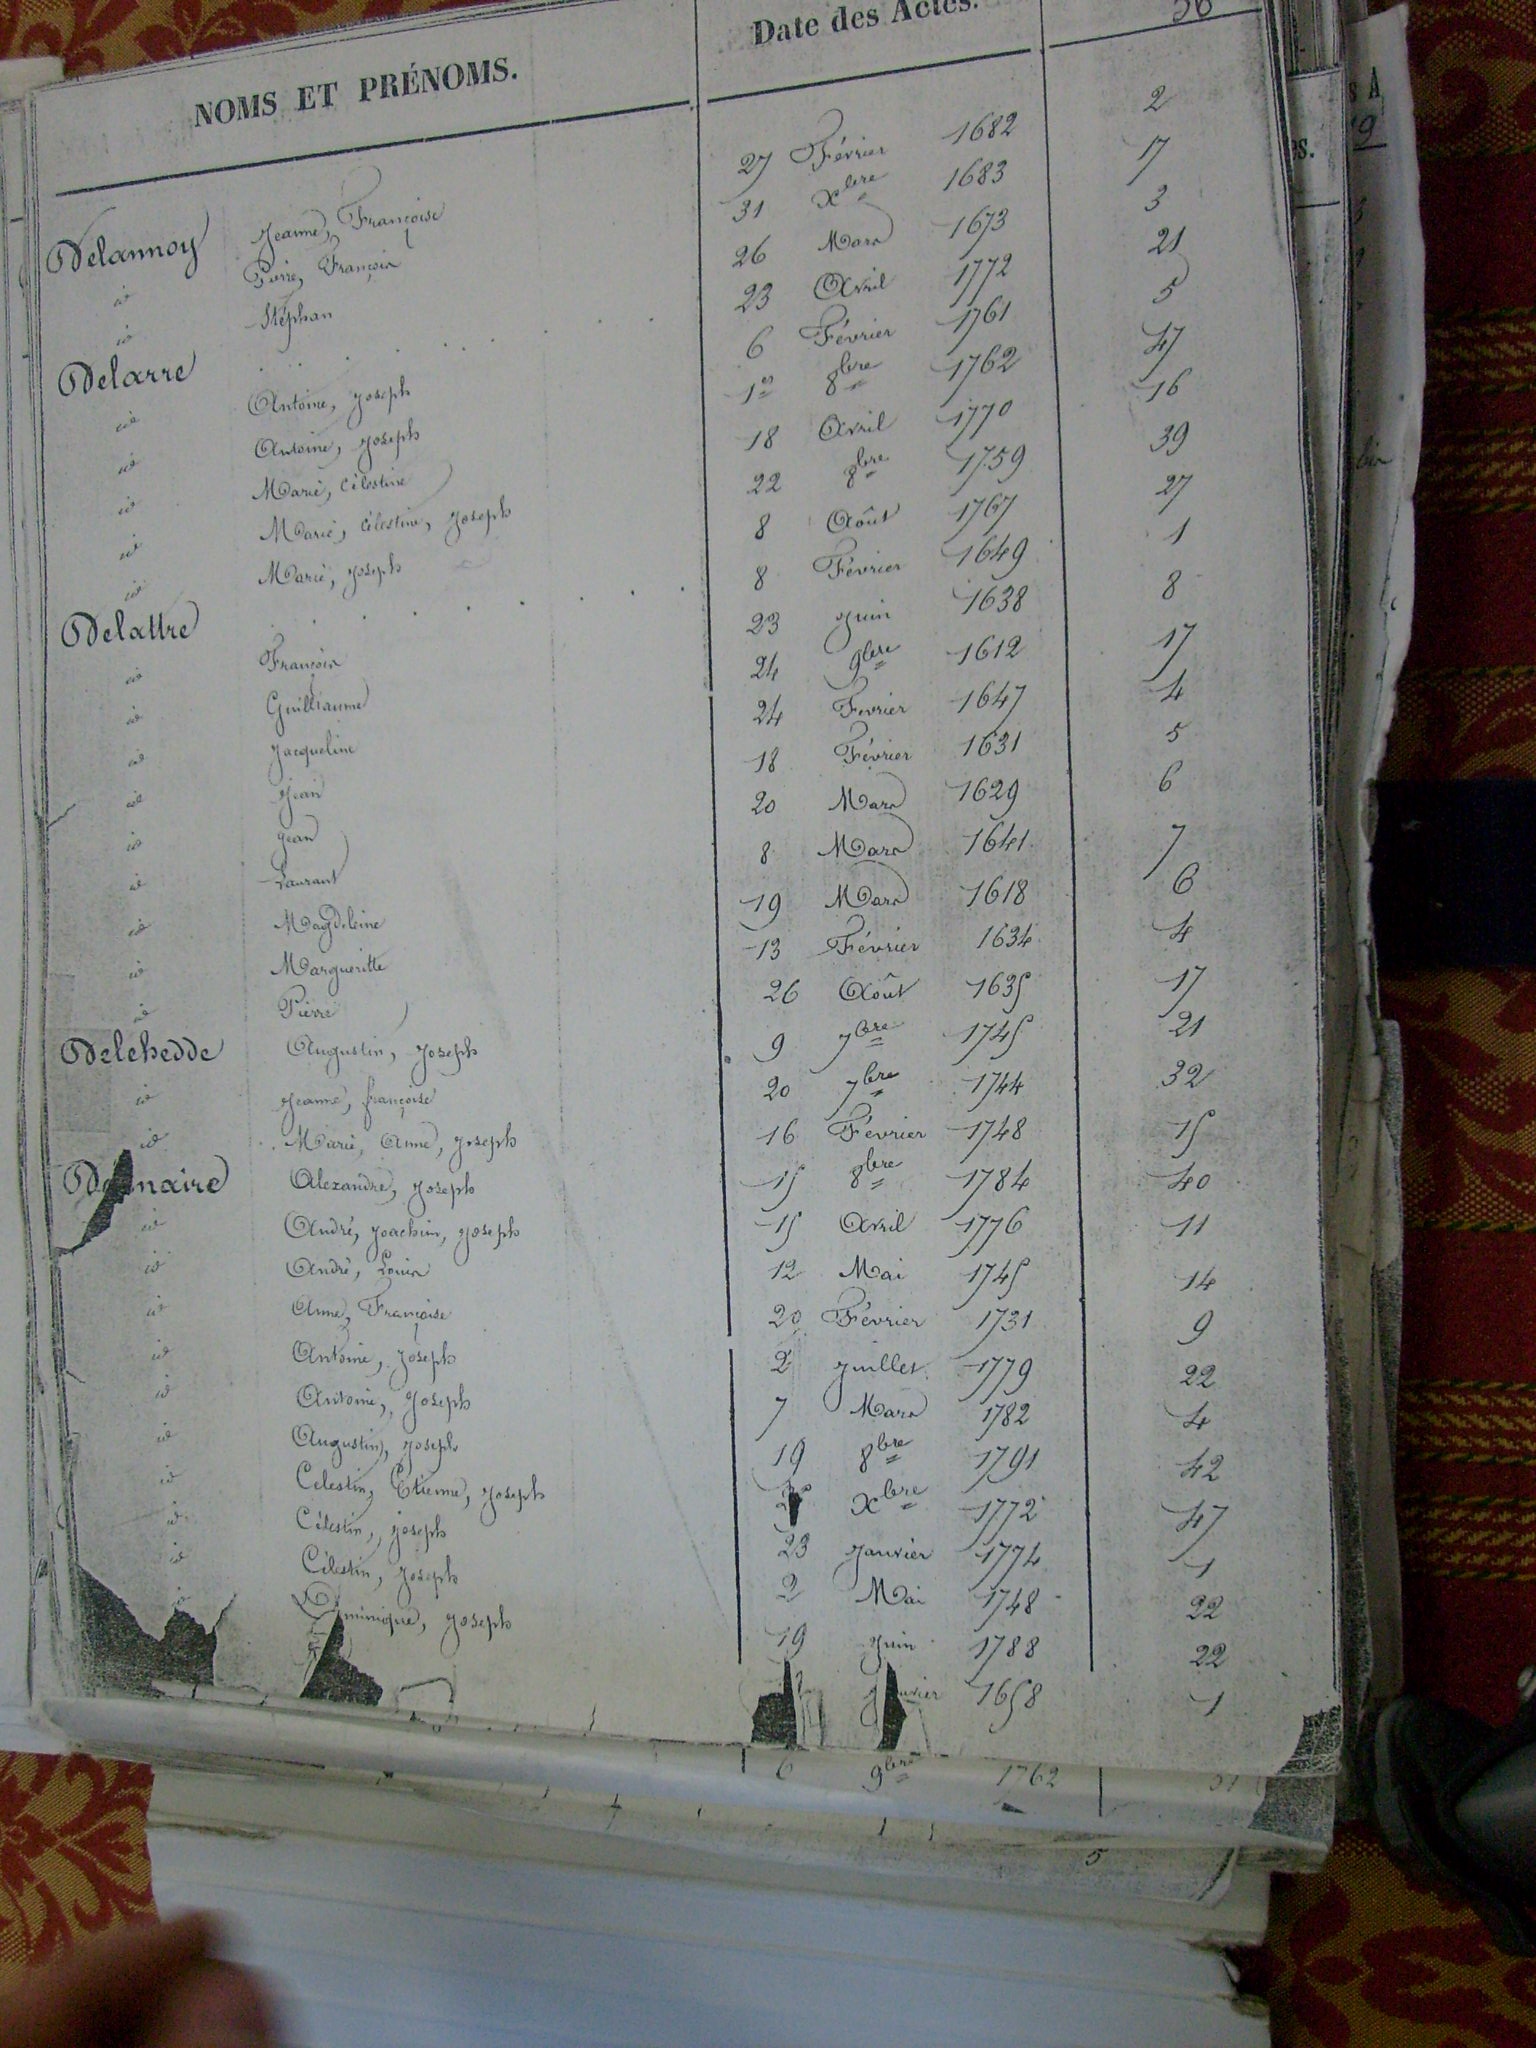 NOMS ET PRÉNOMS. Date des Actes. 56
Delannoy Jeanne, Françoise 27 Février 1682 2
id Pierre, François 31 Xbre 1683 17
id Stéphan 26 Mars 1673 3
Delarre . . . . . . . 23 Avril 1772 21
id Antoine, Joseph 6 Février 1761 5
id Antoine, Joseph 1er 8bre 1762 47
id Marie, Célestine 18 Avril 1770 16
id Marie, Célestine, Joseph 22 8bre 1759 39
id Marie, Joseph 8 Août 1767 27
Delattre . . . . . . . 8 Février 1649 1
id François 23 juin 1638 8
id Guilliaume 24 9bre 1612 17
id Jacqueline 24 Fevrier 1647 4
id Jean 18 Février 1631 5
id Jean 20 Mars 1629 6
id Laurant 8 Mars 1641 7
id Magdeleine 19 Mars 1618 6
id Margueritte 13 Février 1634 4
id Pierre 26 Août 1635 17
Delehedde Augustin, Joseph 9 7bre 1745 21
id Jeanne, françoise 20 7bre 1744 32
id Marie, Anne, Joseph 16 Février 1748 15
Delmaire Alexandre, Joseph 15 8bre 1784 40
id André, Joachim, Joseph 15 Avril 1776 11
id André, Louis 12 Mai 1745 14
id Anne, Françoise 20 Février 1731 9
id Antoine, Joseph 2 juillet 1779 22
id Antoine, Joseph 7 Mars 1782 4
id Augustin, Joseph 19 8bre 1791 42
id Celestin, Etienne, Joseph Xbre 1772 47
id Célestin, Joseph 23 Janvier 1774 1
id Célestin, Joseph 2 Mai 1748 22
id Dominique, Joseph 19 Juin 1788 22
Janvier 1658 1
6 9bre 1762
5